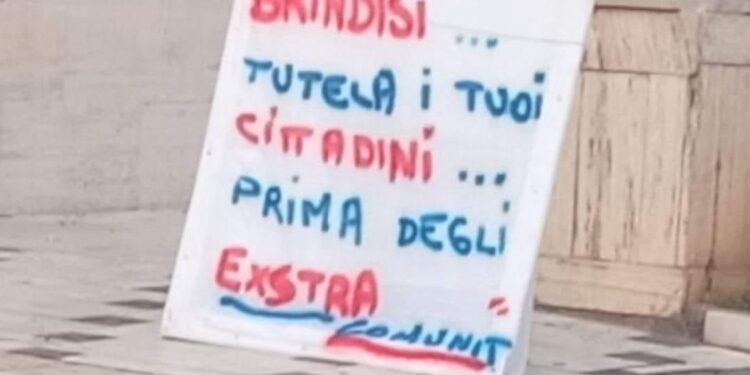 BRINDISI ...
TUTELA i TUOi
CiTTADiNi ...
PRiMA DEGLi
EXSTRA "
COMUNIT